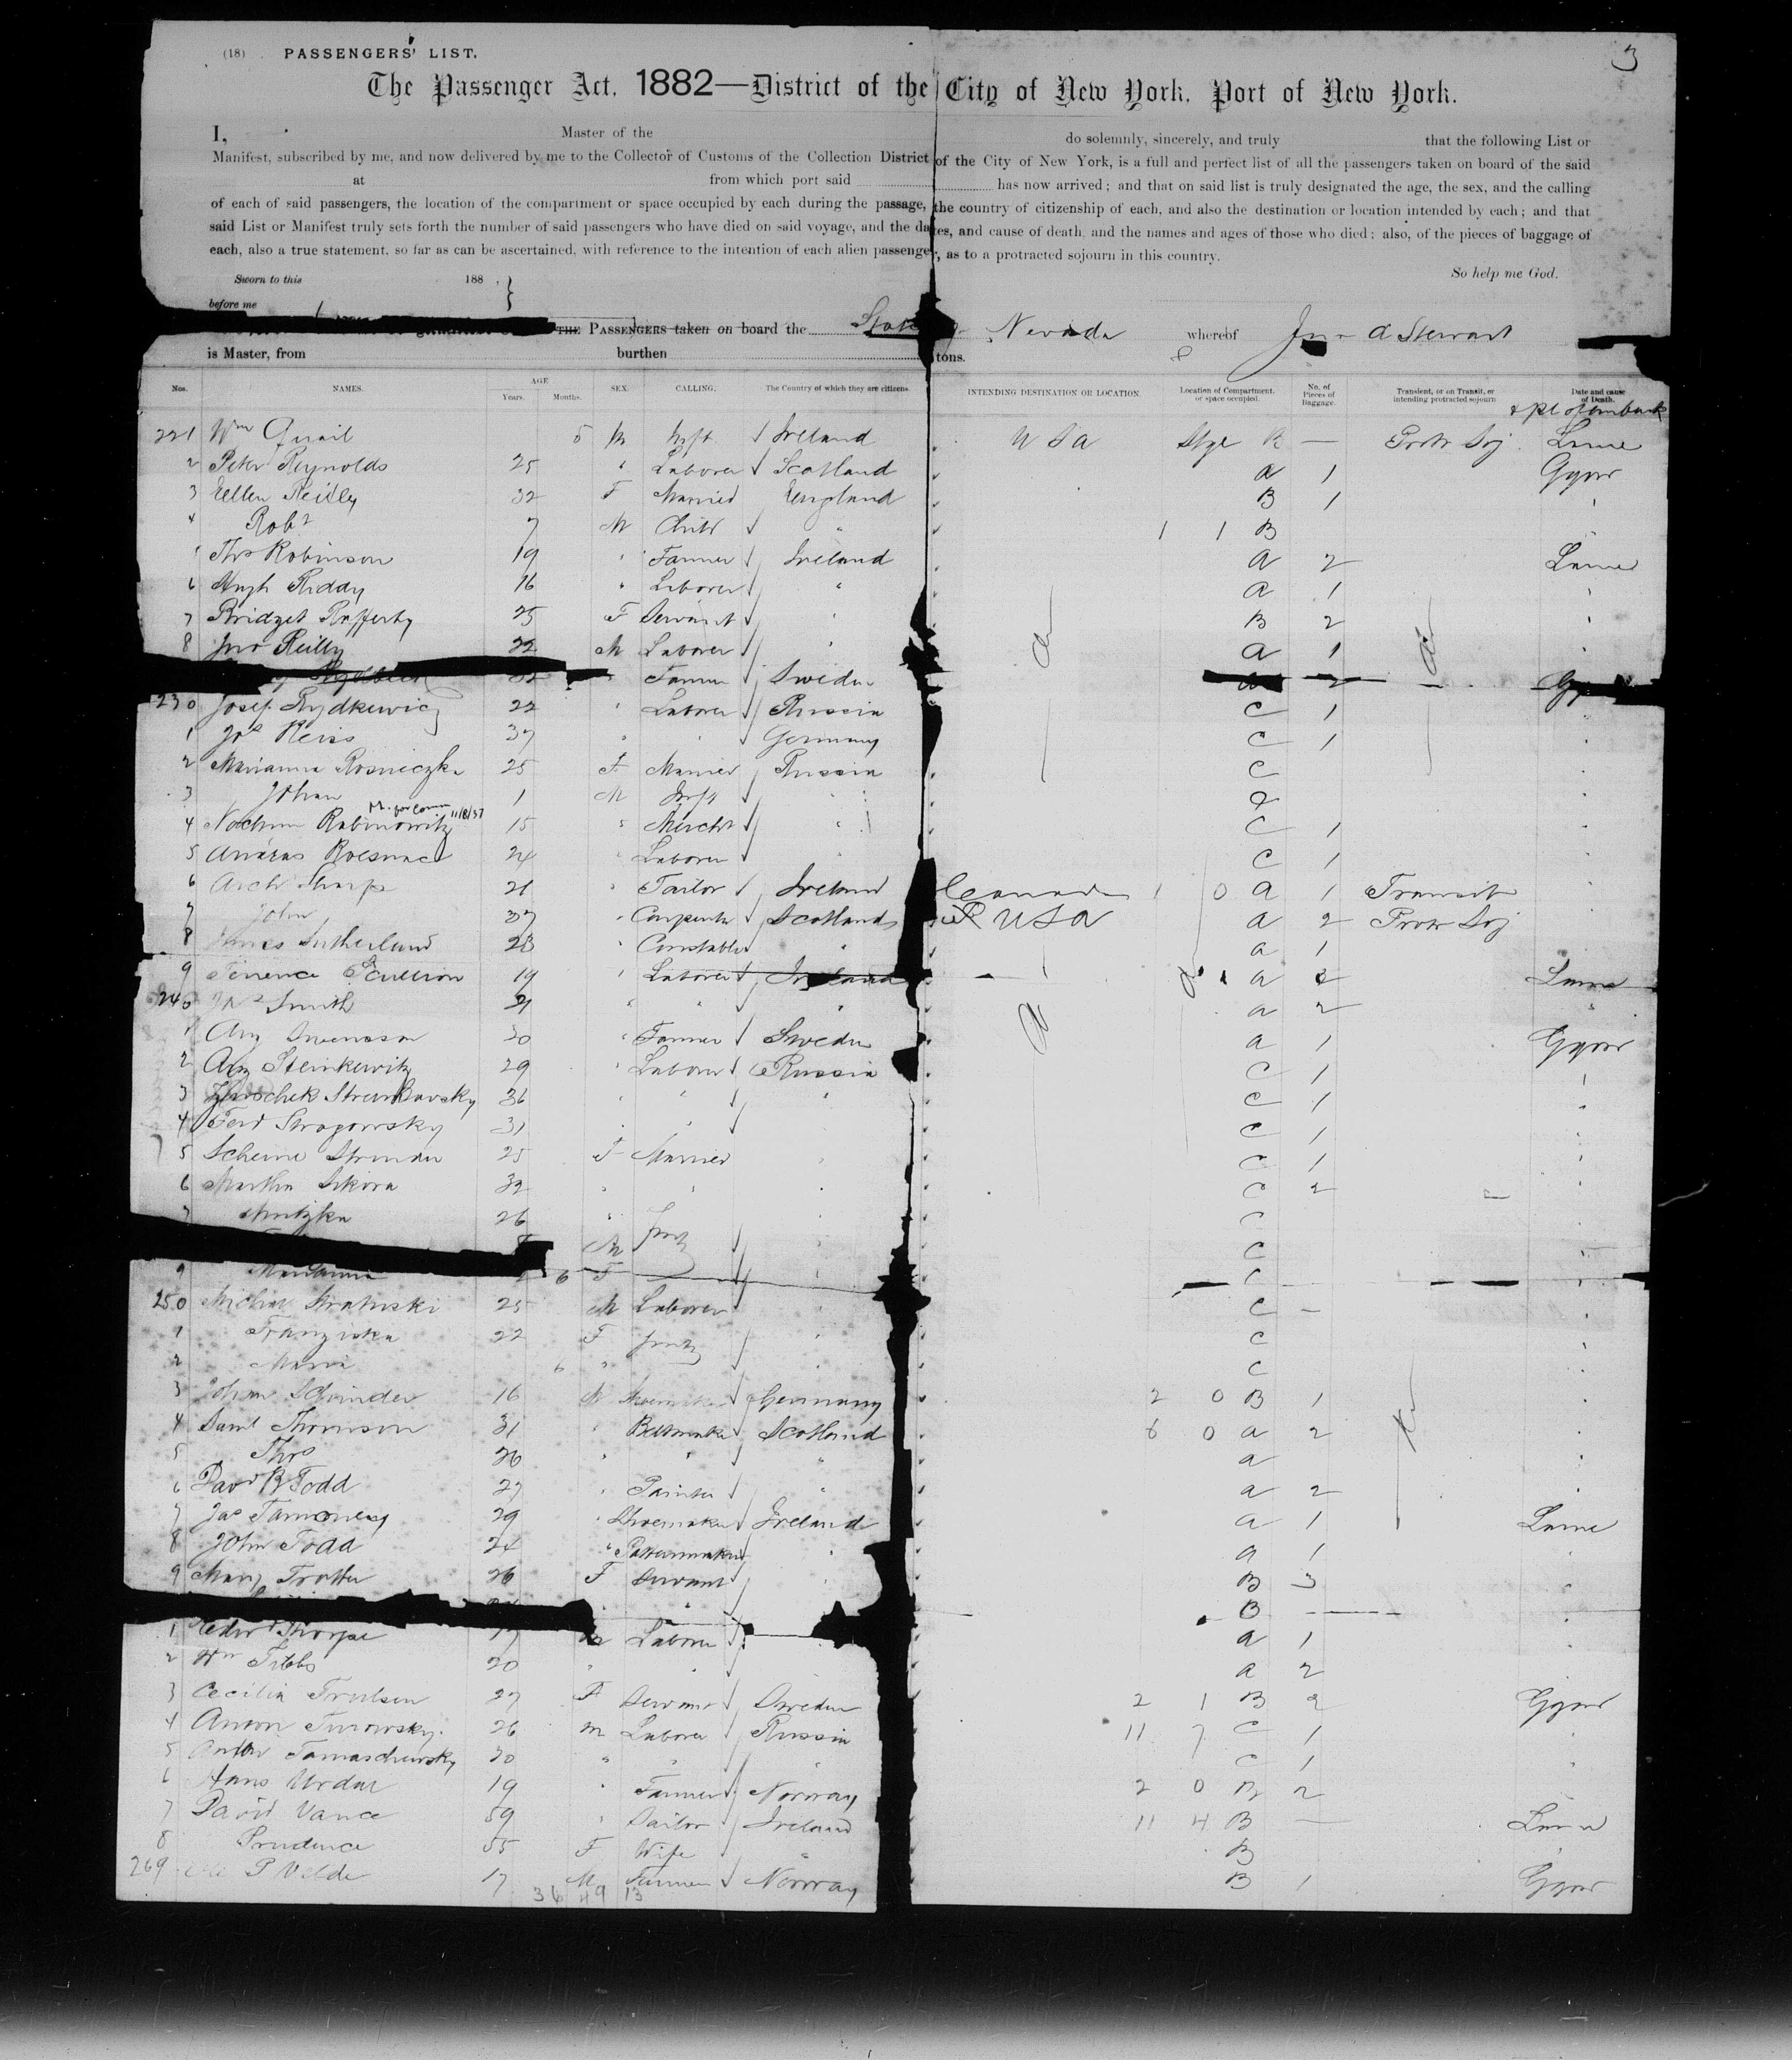 (18) PASSENGERS' LIST. 3
The Passenger Act, 1882—District of the City of New York, Port of New York.
I, Master of the do solemnly, sincerely, and truly that the following List or
Manifest, subscribed by me, and now delivered by me to the Collector of Customs of the Collection District of the City of New York, is a full and perfect list of all the passengers taken on board of the said
at from which port said has now arrived; and that on said list is truly designated the age, the sex, and the calling
of each of said passengers, the location of the compartment or space occupied by each during the passage, the country of citizenship of each, and also the destination or location intended by each; and that
said List or Manifest truly sets forth the number of said passengers who have died on said voyage, and the dates, and cause of death, and the names and ages of those who died; also, of the pieces of baggage of
each, also a true statement, so far as can be ascertained, with reference to the intention of each alien passenger, as to a protracted sojourn in this country.
So help me God.
Sworn to this 188 .
before me
THE PASSENGERS taken on board the State Nevada whereof Jno A Stewart
is Master, from burthen tons.
Nos. NAMES. AGE Years. Months. SEX. CALLING. The Country of which they are citizens. INTENDING DESTINATION OR LOCATION. Location of Compartment, or space occupied. No. of Pieces of Baggage. Transient, or on Transit, or intending protracted sojourn Date and cause of Death.
& pl of embark
221 Wm Quail 5 M Inft Ireland USA Stge B — Protr Soj Larne
2 Peter Reynolds 25 " Laborer Scotland a 1 Ggow
3 Ellen Reilly 32 F Married England B 1
4 Robt 7 M Child " 1 1 B
Thos Robinson 19 " Farmer Ireland a 2 Larne
6 Hugh Riddy 16 " Laborer " a 1
7 Bridget Rafferty 25 F Servant B 2
8 Jno Reilly 22 M Laborer a 1
32 Farmer Sweden 2
230 Josef Rydkewicz 22 " Laborer Russia C 1
1 Jos Reiss 37 " Germany C 1
2 Marianna Rosniczka 25 F Married Russia C
3 Johan 1 M Inft
4 Nochum Rabinowitz 11/8/37 15 " Mercht C 1
5 Andras 24 " Laborer C 1
6 Arch Sharp 21 " Tailor Ireland Canada 1 0 a 1 Transit
7 John 37 " Carpenter Scotland USA a 2 Protr Soj
8 James Sutherland 23 " Constable " a 1
9 Terence Scullion 19 " Laborer Ireland a 2 Larne
240 Smith 21 " " " a 2
1 Aug Swensson 30 " Farmer Sweden a 1 Ggow
2 Aug Steinkewitz 29 " Laborer Russia C 1
3 36 " " " C 1
4 Ferd Stragowsky 31 C 1
5 25 F Married C 1
6 Martha Sikora 32 C 2
7 26 C
M C
9 Marianna 6 F C
250 Michal 25 M Laborer C —
1 Franziska 22 F C
2 Maria 6 " C
3 Johan Schinder 16 M Shoemaker Germany 2 0 B 1
4 Saml Thomson 31 " Beltmaker Scotland 6 0 a 2
5 Thos 26 " " " a
6 Davd B Todd 27 " Painter " a 2
7 Jas Tamoney 29 " Shoemaker Ireland a 1 Larne
8 John Todd 24 " Patternmaker a 1
9 Mary Trotter 26 F Servant B 3
B
1 Edwd Thorpe 17 M Laborer a 1
2 Wm Tibbs 20 " a 2
3 Cecilia Trulsen 27 F Servant Sweden 2 1 B 2 Ggow
4 Anton Turowsky 26 M Laborer Russia 11 7 C 1
5 Anton Tomaschewsky 30 " " " C 1
6 Hans Urdal 19 " Farmer Norway 2 0 B 2
7 David Vance 59 " Sailor Ireland 11 4 B — Larne
8 Prudence 55 F Wife " B
269 P Velde 17 M Farmer Norway B 1 Ggow
36 49 13